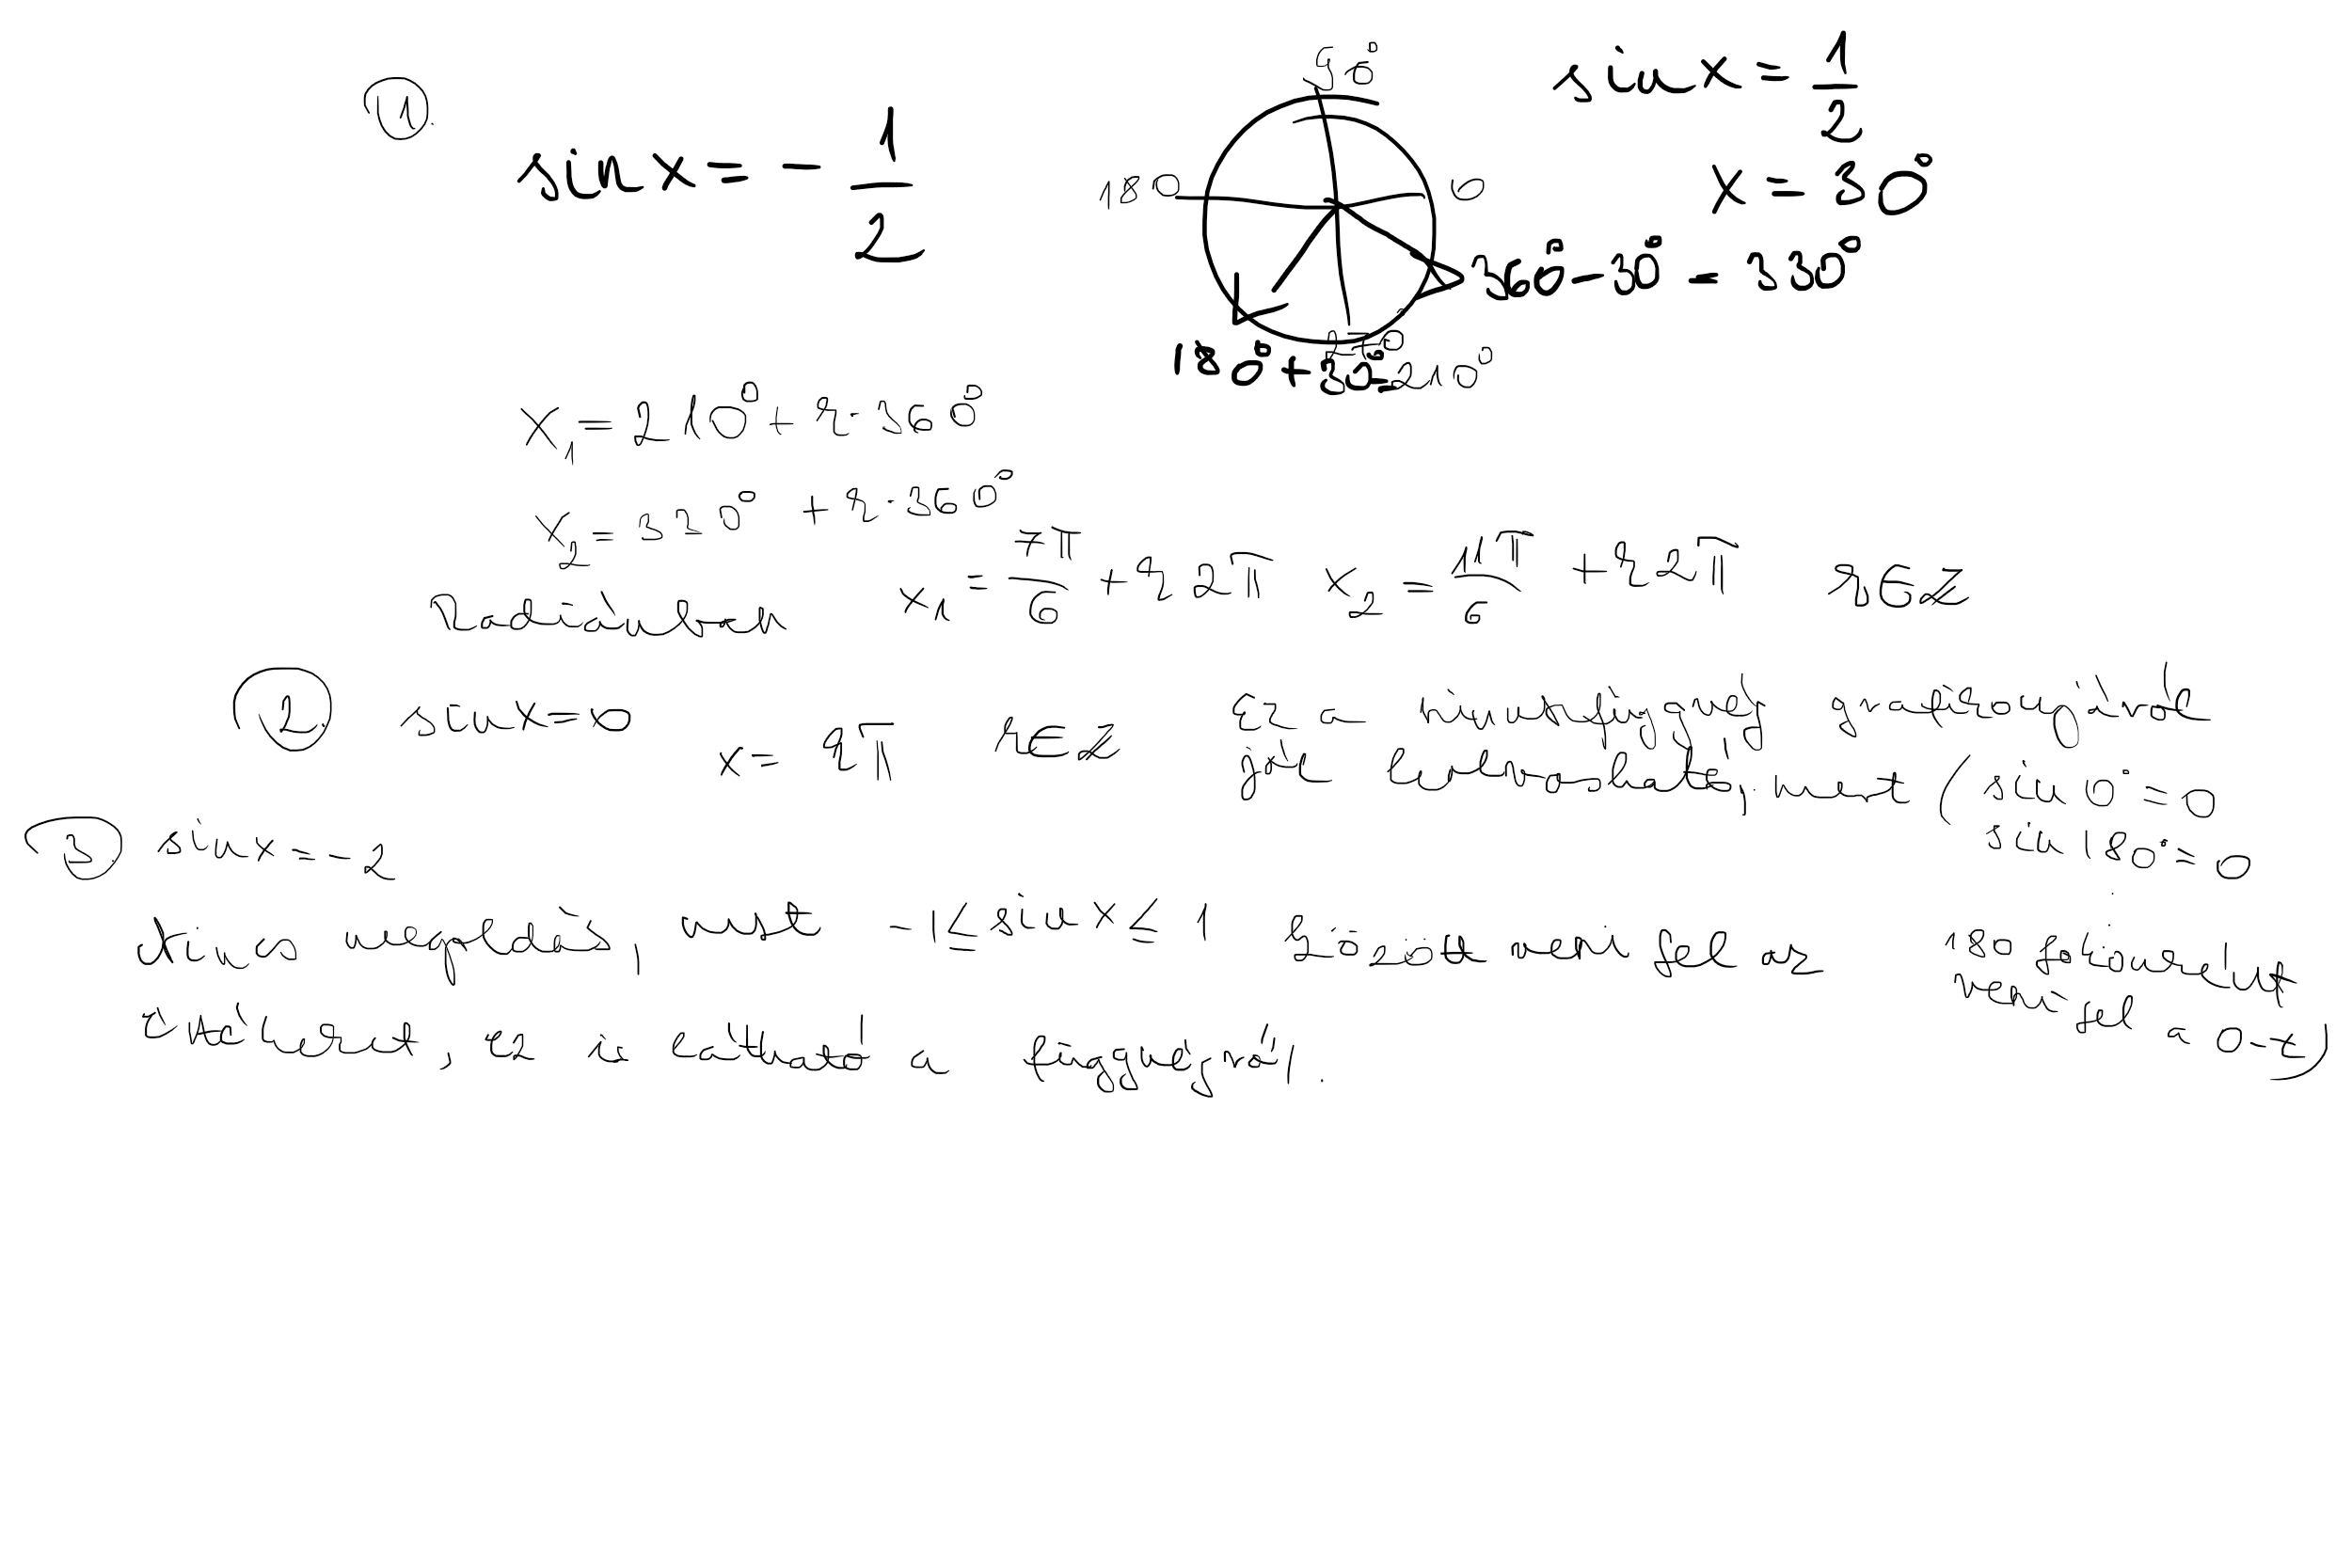 1.
sin x = - 1/2
90°
180
0
270
180° + 30° = 210°
360° - 30° = 330°
sin x = 1/2
x = 30°
x₁ = 210° + k · 360°
x₂ = 330° + k · 360°
Radiánban x₁ = 7π/6 + k 2π x₂ = 11π/6 + k 2π k ∈ Z
2. sin x = 0 x = kπ k ∈ Z
Ez a sinusfüggvény grafikonjáról
jól leolvasható, mert (sin 0° = 0
sin 180° = 0
180 fokonként
veszi fel a 0-t)
3. sin x = -2
Nincs megoldás, mert -1 ≤ sin x ≤ 1 között veszi fel az
értékeket, ez is látható a függvényről.